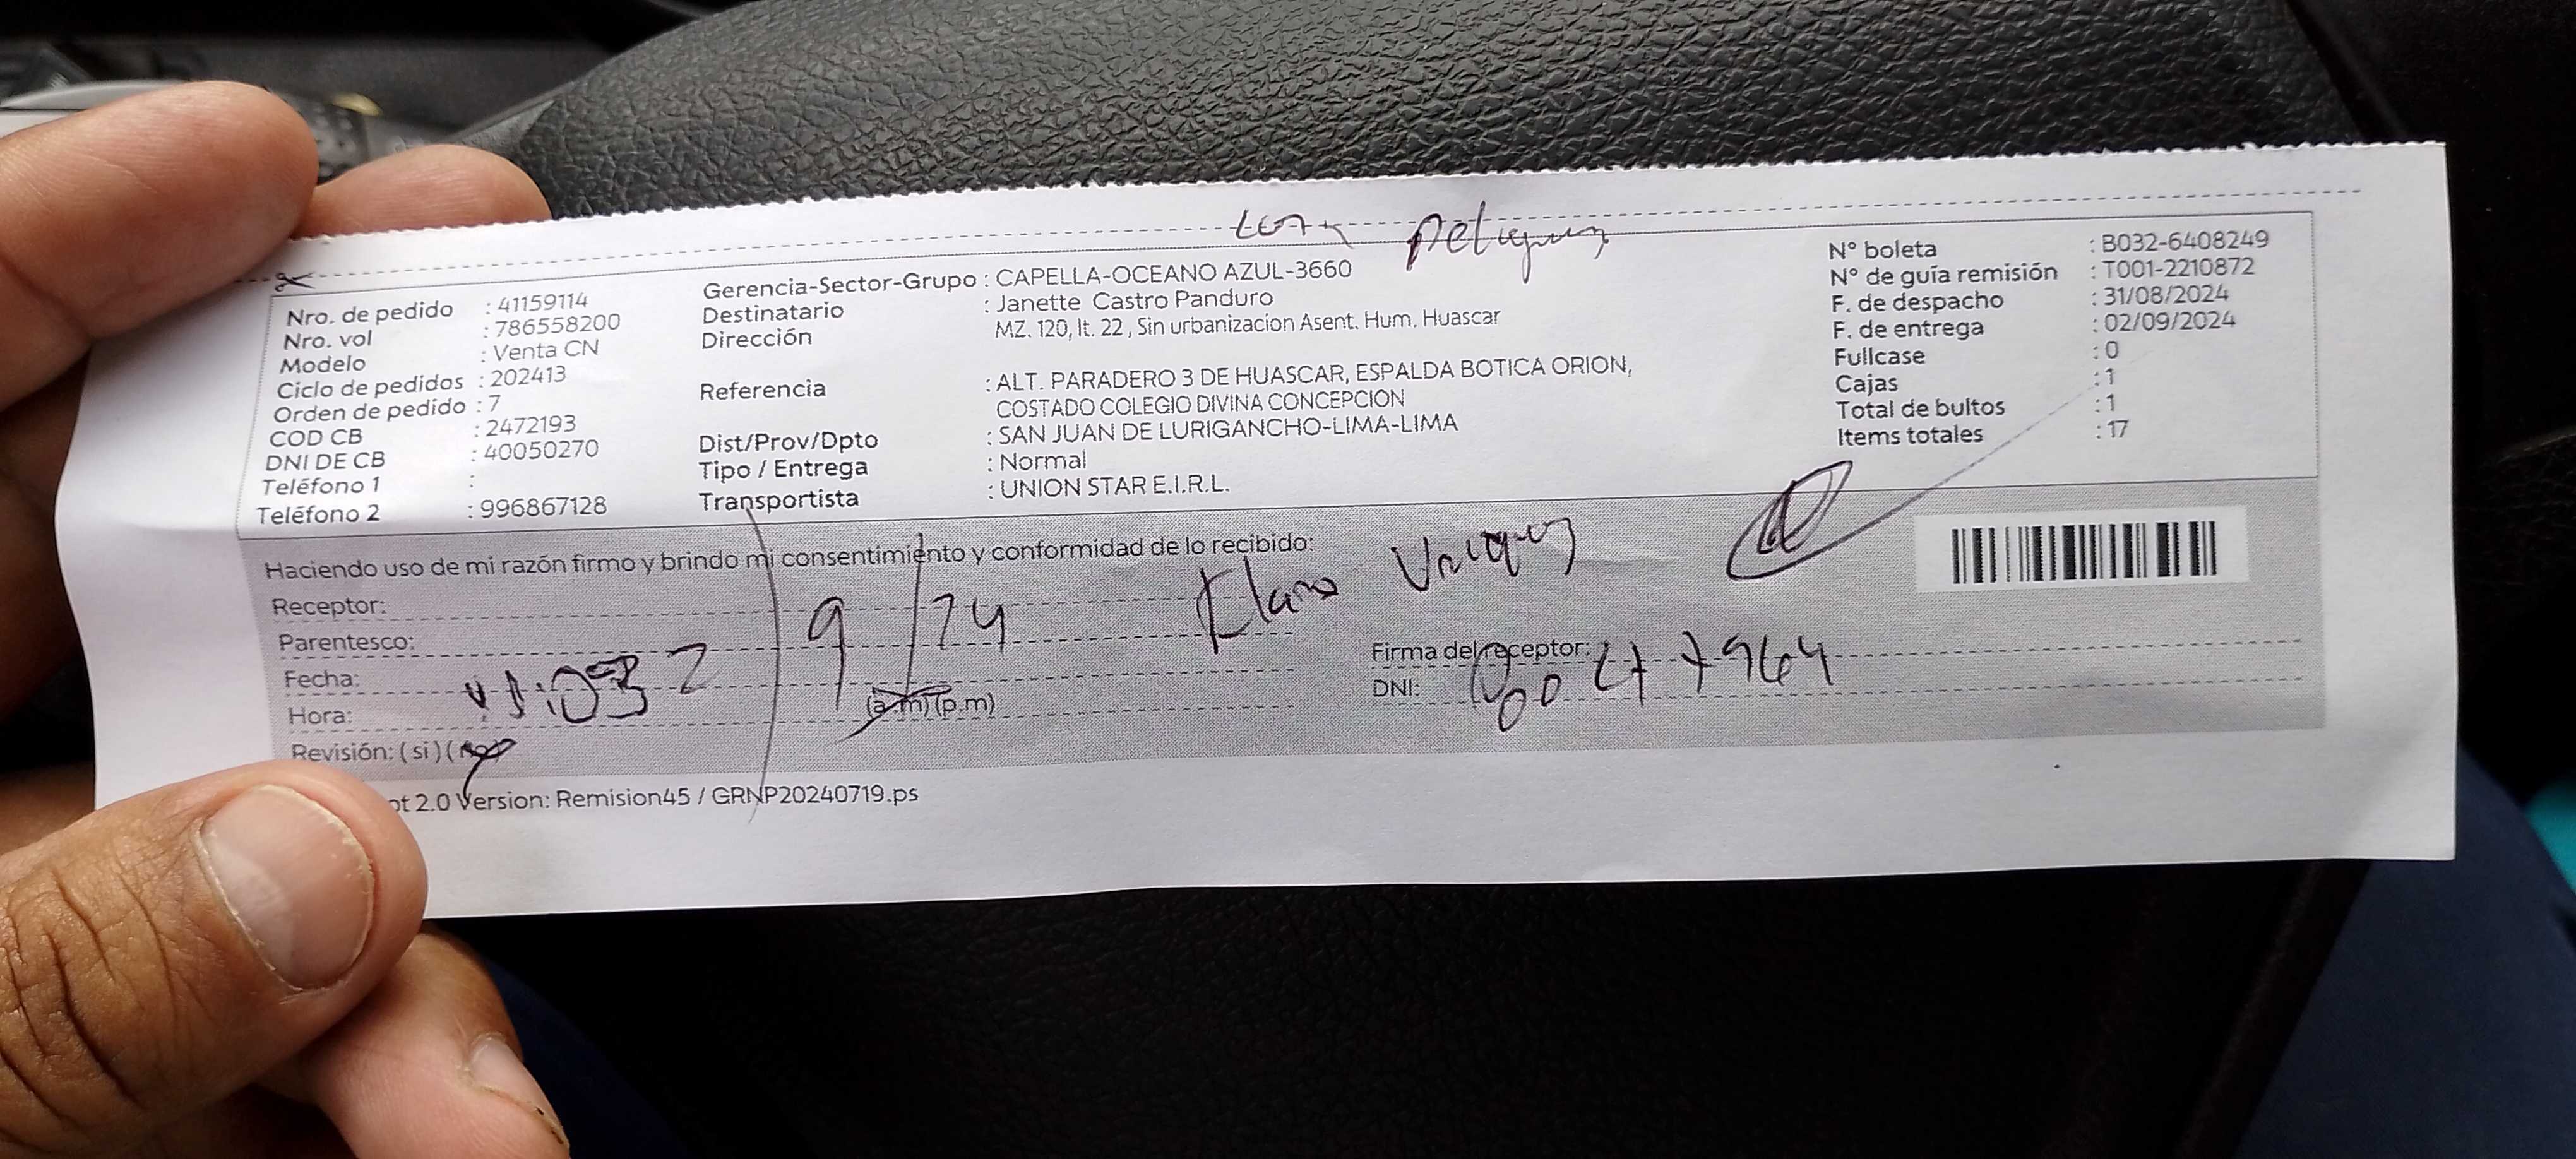 Nro. de pedido : 41159114
Nro. vol : 786558200
Modelo : Venta CN
Ciclo de pedidos : 202413
Orden de pedido : 7
COD CB : 2472193
DNI DE CB : 40050270
Teléfono 1 :
Teléfono 2 : 996867128
Gerencia-Sector-Grupo : CAPELLA-OCEANO AZUL-3660
Destinatario : Janette Castro Panduro
Dirección MZ. 120, lt. 22 , Sin urbanizacion Asent. Hum. Huascar
Referencia : ALT. PARADERO 3 DE HUASCAR, ESPALDA BOTICA ORION,
COSTADO COLEGIO DIVINA CONCEPCION
Dist/Prov/Dpto : SAN JUAN DE LURIGANCHO-LIMA-LIMA
Tipo / Entrega : Normal
Transportista : UNION STAR E.I.R.L.
N° boleta : B032-6408249
N° de guía remisión : T001-2210872
F. de despacho : 31/08/2024
F. de entrega : 02/09/2024
Fullcase : 0
Cajas : 1
Total de bultos : 1
Items totales : 17
Haciendo uso de mi razón firmo y brindo mi consentimiento y conformidad de lo recibido:
Receptor:
Parentesco:
Fecha: 2/9/24
Hora: (a.m) (p.m)
Revisión: ( si ) (
Firma del receptor:
DNI:
2.0 Version: Remision45 / GRNP20240719.ps